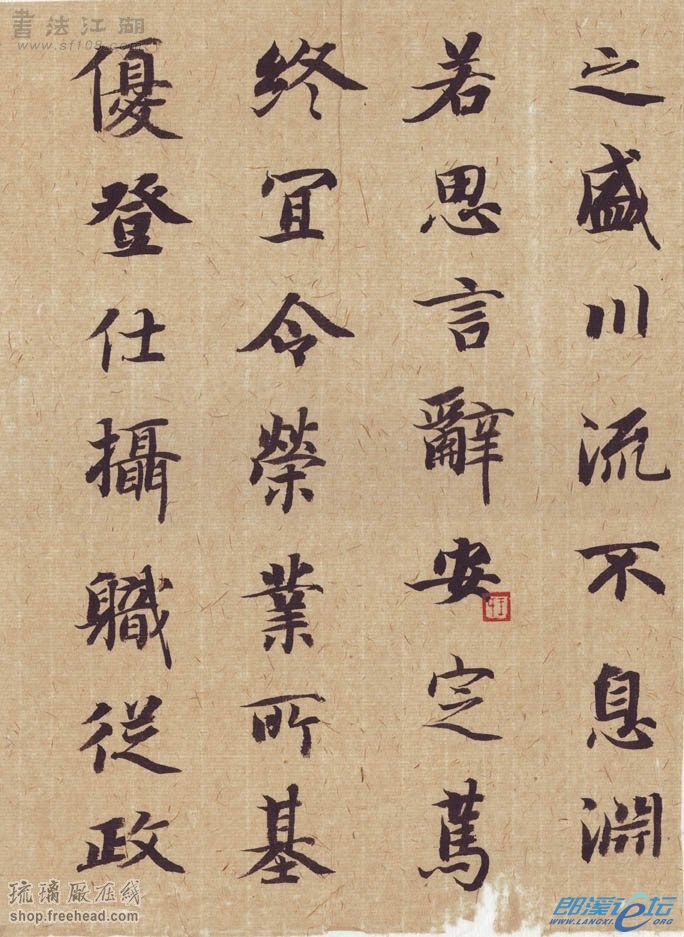 書法江湖
www.sf108.com
之盛川流不息淵
若思言辭安定篤
終宜令榮業所基
優登仕攝職從政
琉璃厰在线
shop.freehead.com
郎溪论坛
WWW.LANGXI.ORG